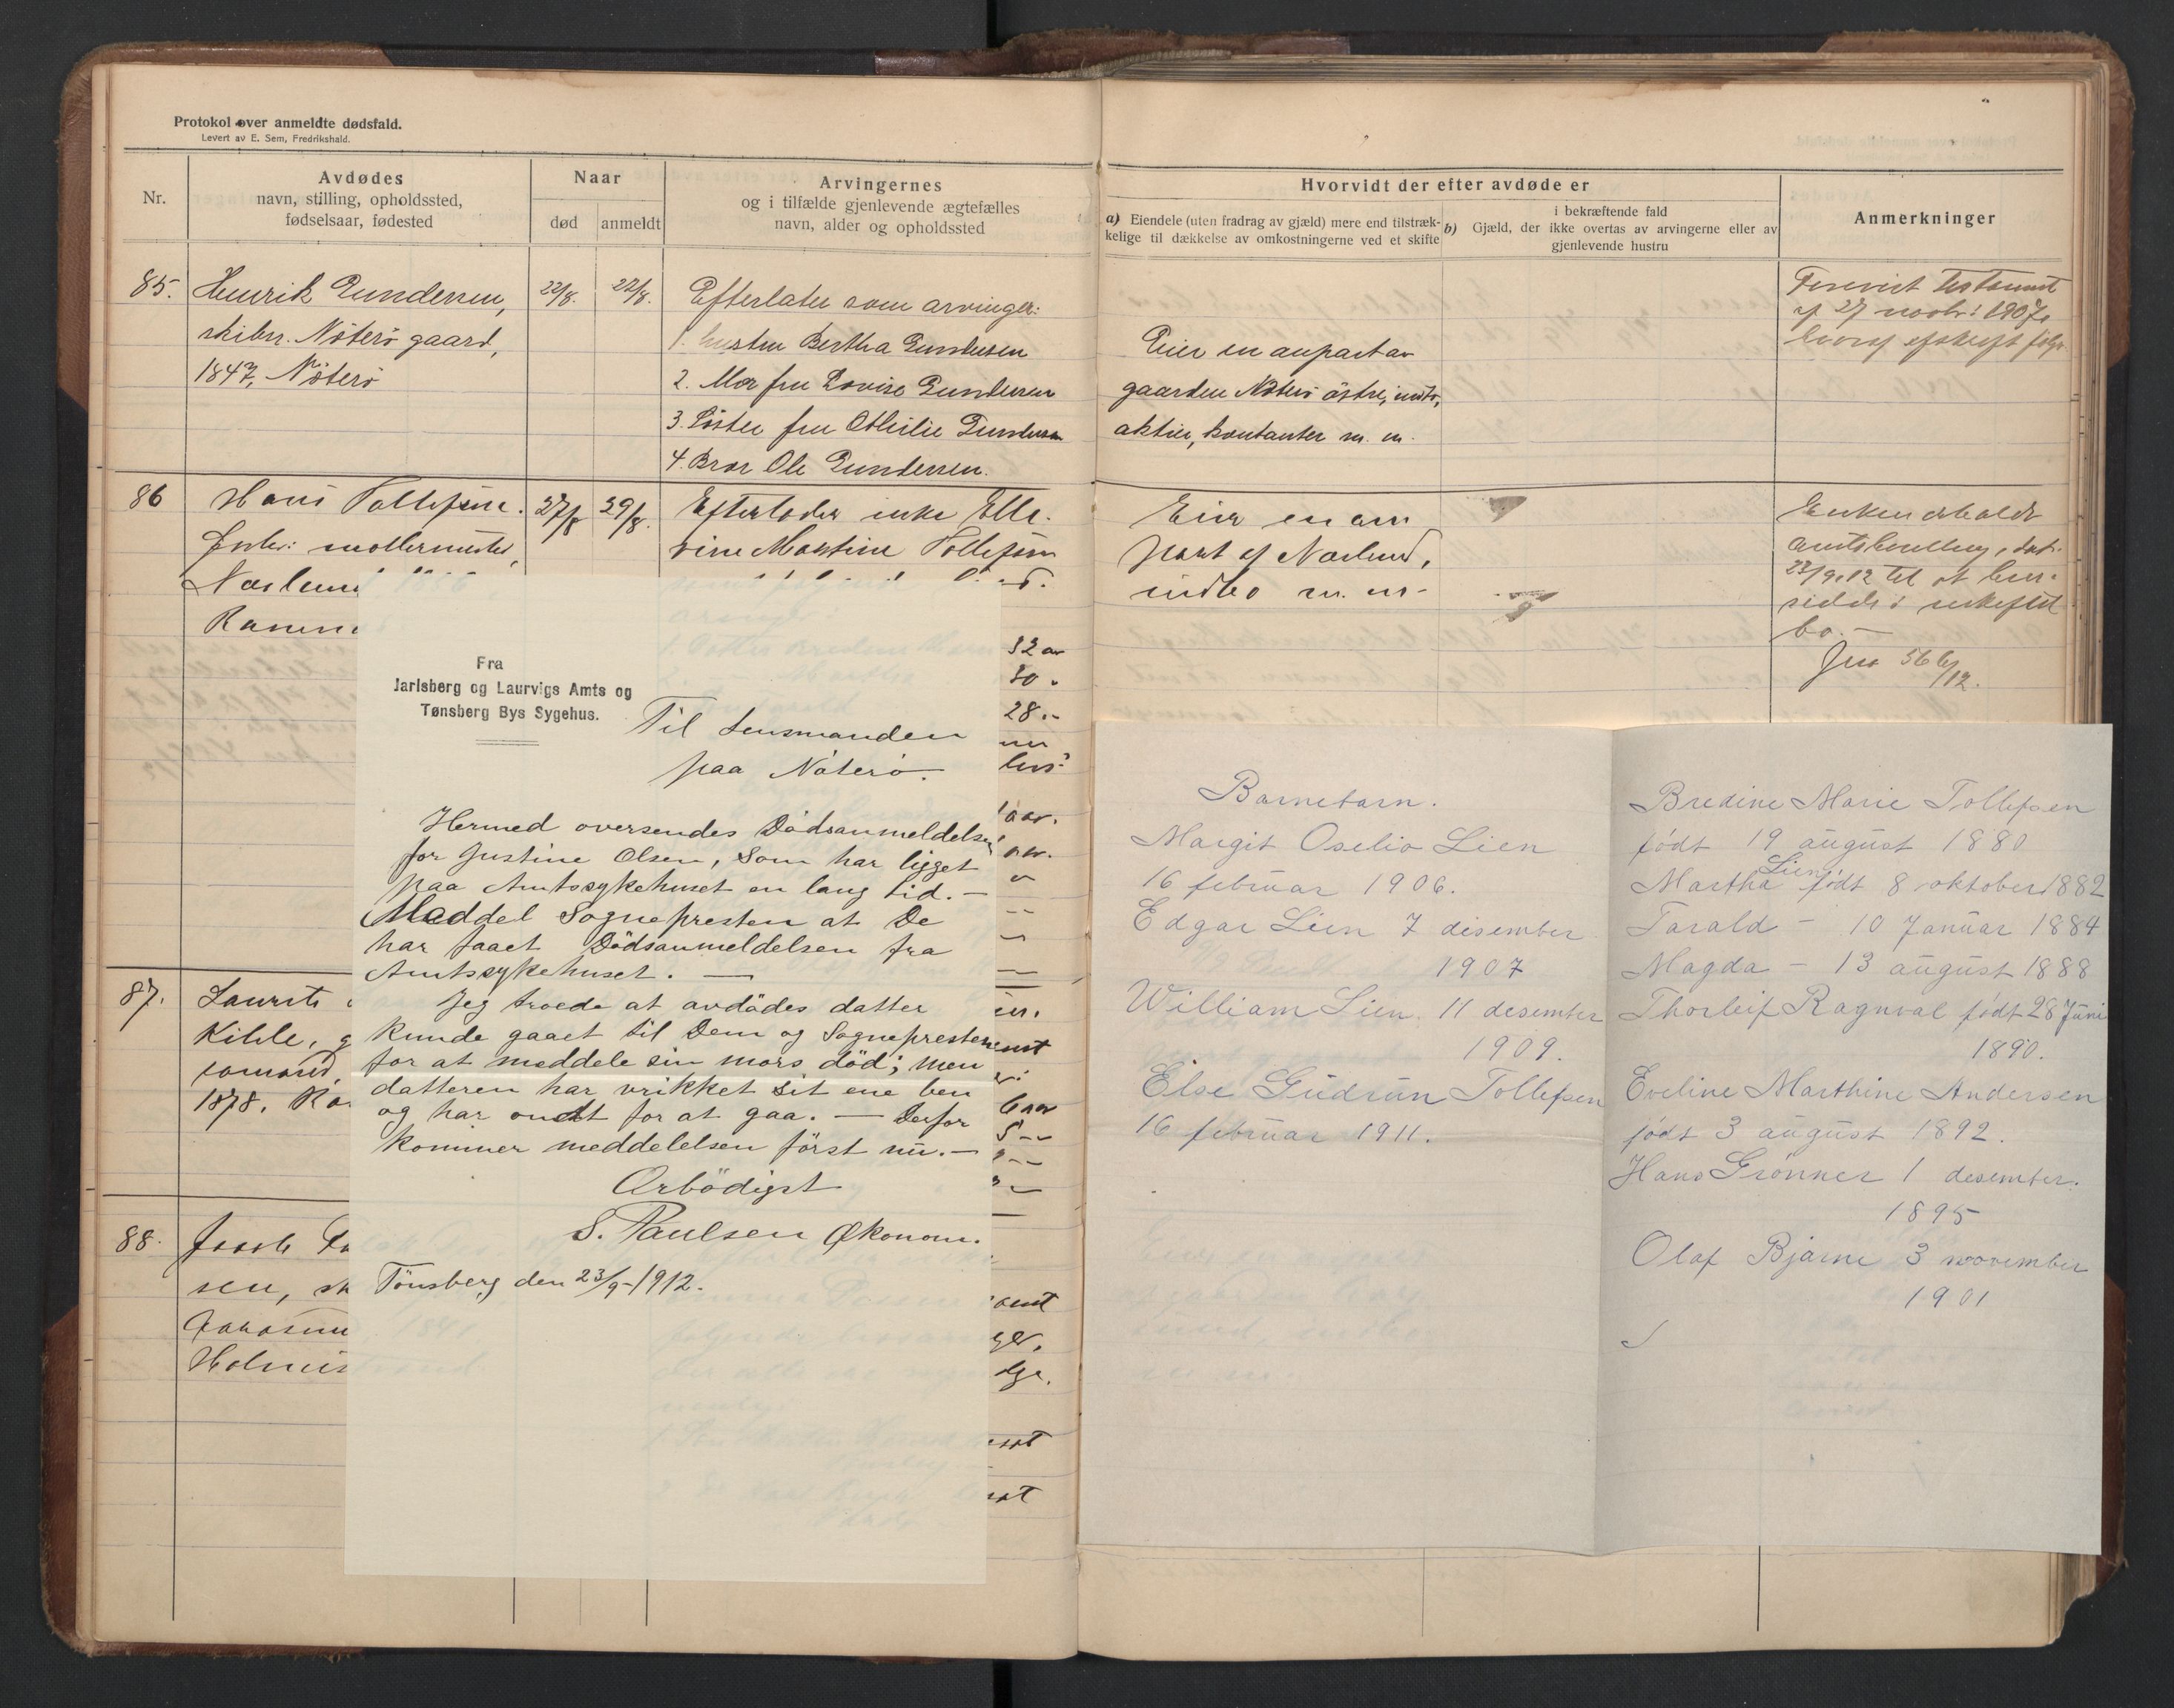 Protokol over anmeldte dødsfald.
Levert av E. Sem, Fredrikshald.
Nr.
Avdødes
navn, stilling, opholdssted,
fødselsaar, fødested
Naar
død
anmeldt
Arvingernes
og i tilfælde gjenlevende ægtefælles
navn, alder og opholdssted
Hvorvidt der efter avdøde er
a) Eiendele (uten fradrag av gjæld) mere end tilstræk-
kelige til dækkelse av omkostningerne ved et skifte
i bekræftende fald
b) Gjæld, der ikke overtas av arvingerne eller av
gjenlevende hustru
Anmerkninger
85.
Henrik Gundersen,
skibsr. Nøterø gaard,
1847, Nøterø
22/8.
22/8.
Efterlater som arvinger:
1. hustru Bertha Gundersen
2. Mor fru Lovise Gundersen
3. Søster fru Othilie Gundersen
4. Bror Ole Gundersen.
Eier en anpart av
gaarden Nøterø østre, indbo,
aktier, kontanter m. m.
Forevist testament
af 27 novbr: 1907,
hvoraf afskrift følger
86
Hans Tollefsen.
Forh: møllermester,
Narlund
Ramnes
27/8
29/8.
Efterlader enke Elle-
vine Martine Tollefsen
32 aar
30 "
28 "
Eier en an-
part af Narlund,
indbo m. m.
Enken erholdt
amtsbevilling, dat.
23/9.12 til at hen-
sidde i uskiftet
bo. —
Jno 566/12.
Fra
Jarlsberg og Laurvigs Amts og
Tønsberg Bys Sygehus.
Til Lensmanden
paa Nøterø.
Hermed oversendes Dødsanmeldelsen
for Justine Olsen, som har ligget
paa Amtssykehuset en lang tid. —
Meddel Sognepresten at De
har faaet Dødsanmeldelsen fra
Amtssykehuset. —
Jeg troede at avdødes datter
kunde gaaet til Dem og Sognepresten
for at meddele sin mors død; men
datteren har vrikket sit ene ben
og har ondt for at gaa. — Derfor
kommer meddelelsen først nu. —
Ærbødigst
S. Paulsen Økonom.
Tønsberg den 23/9-1912.
87.
Laurits
Kihle, g
1878.
88.
Jacob
sen, sk
Holmes
Barnebarn.
Margit Oselio Lien
16 februar 1906.
Edgar Lien 7 disember
1907
William Lien. 11 desember
1909.
Else Gudrun Tollefsen
16 februar 1911.
Bredine Marie Tollefsen
født 19 august 1880
Martha Lien født 8 oktober 1882
Tarald — 10 Januar 1884
Magda — 13 august 1888
Thorleif Ragnval født 28 Juni
1890.
Eveline Marthine Andersen
født 3 august 1892.
Hans Grønner 1 desember.
1895
Olaf Bjarne 3 november
1901